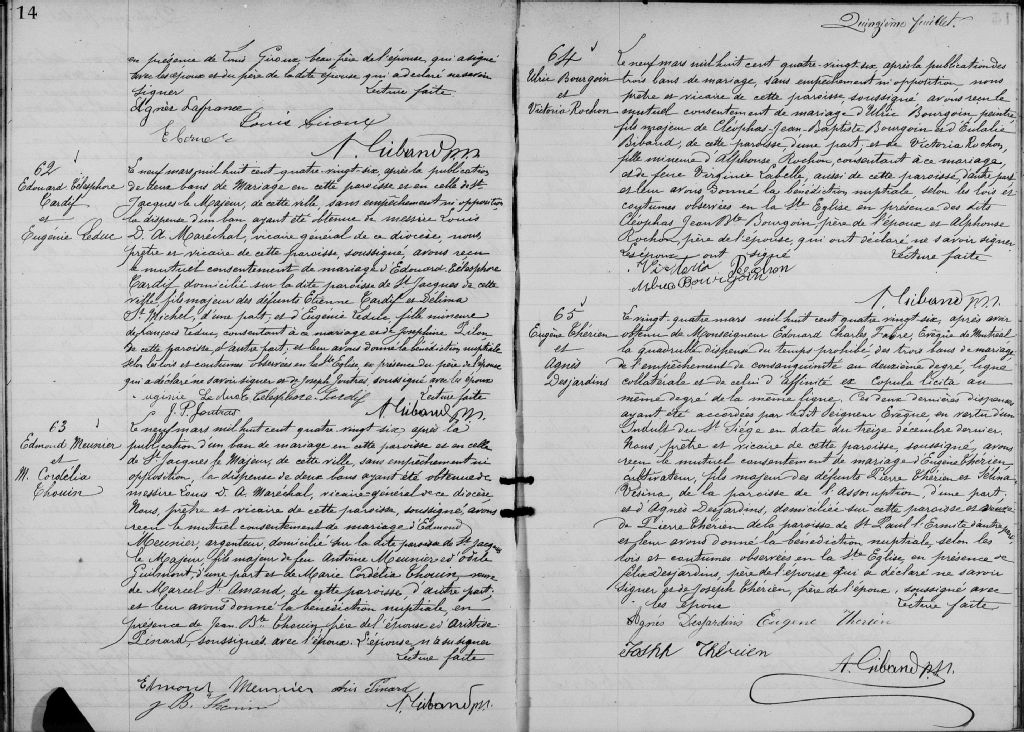 14
en présence de Louis Giroux beau père de l'épouse, qui a signé
avec les époux et du père de la dite épouse qui a déclaré ne savoir
signer Lecture faite
Agnès Lafrance
Louis Giroux
A. Giband ptr.
62
Edouard Télesphore
Cardif
et
Eugénie Leduc
Le neuf mars mil huit cent quatre vingt six, après la publication
de deux bans de Mariage en cette paroisse et en celle de St
Jacques le Majeur, de cette ville, sans empêchement ni opposition,
la dispense d'un ban ayant été obtenue de messire Louis
D. A. Maréchal, vicaire général de ce diocèse, nous,
prêtre et vicaire de cette paroisse soussigné, avons reçu
le mutuel consentement de mariage d'Edouard Télesphore
Cardif domicilié sur la dite paroisse de St Jacques de cette
ville, fils majeur des défunts Etienne Cardif et Délima
St Michel, d'une part, et d'Eugénie Leduc, fille mineure
de François Leduc, consentant à ce mariage et de Josephine Pilon
de cette paroisse, d'autre part, et leur avons donné la bénédiction nuptiale
selon les lois et coutumes observées en la Ste Eglise, en présence du père de l'épouse
qui a déclaré ne savoir signer et de Joseph Joutras, soussigné avec les époux
Eugénie Leduc Télesphore Cardif Lecture faite
J. P. Joutras A. Giband ptr.
63
Edmond Meunier
et
M. Cordélia
Chouin
Le neuf mars mil huit cent quatre vingt six après la
publication d'un ban de mariage en cette paroisse et en celle
de St Jacques le Majeur, de cette ville, sans empêchement ni
opposition, la dispense de deux bans ayant été obtenue de
messire Louis D. A. Maréchal, vicaire général de ce diocèse
Nous, prêtre et vicaire de cette paroisse, soussigné, avons
reçu le mutuel consentement de mariage d'Edmond
Meunier, argenteur, domicilié sur la dite paroisse de St Jacques
le Majeur, fils majeur de feu Antoine Meunier et d'Odile
Guimont, d'une part et de Marie Cordélia Chouin, veuve
de Marcel St Amand, de cette paroisse, d'autre part;
et leur avons donné la bénédiction nuptiale, en
présence de Jean Bte Chouin père de l'épouse et d'Aristide
Pinard, soussignés avec l'époux. L'épouse n'a su signer
Lecture faite
Edmond Meunier Aris Pinard
J B. Thouin A. Giband ptr.
Quinzième feuillet.
64
Ulric Bourgoin
et
Victoria Rochon
Le neuf mars mil huit cent quatre-vingt-six, après la publication des
trois bans de mariage, sans empêchement ni opposition, nous
prêtre et vicaire de cette paroisse, soussigné avons reçu le
mutuel consentement de mariage d'Ulric Bourgoin peintre,
fils majeur de Cléophas-Jean-Baptiste Bourgoin et d'Eulalie
Bibaud, de cette paroisse, d'une part, et de Victoria Rochon,
fille mineure d'Alphonse Rochon, consentant à ce mariage,
et de feue Virginie Labelle, aussi de cette paroisse d'autre part
et leur avons donné la bénédiction nuptiale selon les lois et
coutumes observées en la Ste Eglise en présence des dits
Cléophas Jean Bte Bourgoin, père de l'époux et Alphonse
Rochon, père de l'épouse, qui ont déclaré ne savoir signer
Les époux ont signé Lecture faite
Victoria Rochon
Ulric Bourgoin
A. Giband ptr.
65
Eugène Thérien
et
Agnès
Desjardins
Le vingt-quatre mars mil huit cent quatre vingt six, après avoir
obtenu de Monseigneur Edouard Charles Fabre, Evêque de Montréal
la quadruple dispense du temps prohibé des trois bans de mariage
de l'empêchement de consanguinité au deuxième degré, ligne
collatérale et de celui d'affinité ex copula licita au
même degré de la même ligne, Ces deux dernières dispenses
ayant été accordées par le dit Seigneur Evêque, en vertu d'un
Indult du St Siège en date du treize décembre dernier.
Nous, prêtre et vicaire de cette paroisse, soussigné, avons
reçu le mutuel consentement de mariage d'Eugène Thérien,
cultivateur, fils majeur des défunts Pierre Thérien et Sélina
Vésina, de la paroisse de l'Assomption, d'une part
et d'Agnès Desjardins, domiciliée sur cette paroisse et veuve
de Pierre Thérien de la paroisse de St Paul l'Ermite d'autre part
et leur avons donné la bénédiction nuptiale, selon les
lois et coutumes observées en la Ste Eglise, en présence de
Félix Desjardins, père de l'épouse qui a déclaré ne savoir
signer et de Joseph Thérien, frère de l'époux, soussigné avec
les époux Lecture faite
Agnès Desjardins Eugène Therien
Joseph Thérien
A. Giband ptr.